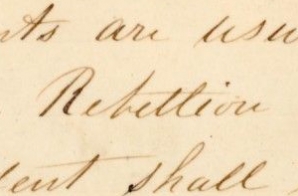 nts are usu
Rebellion
dent shall